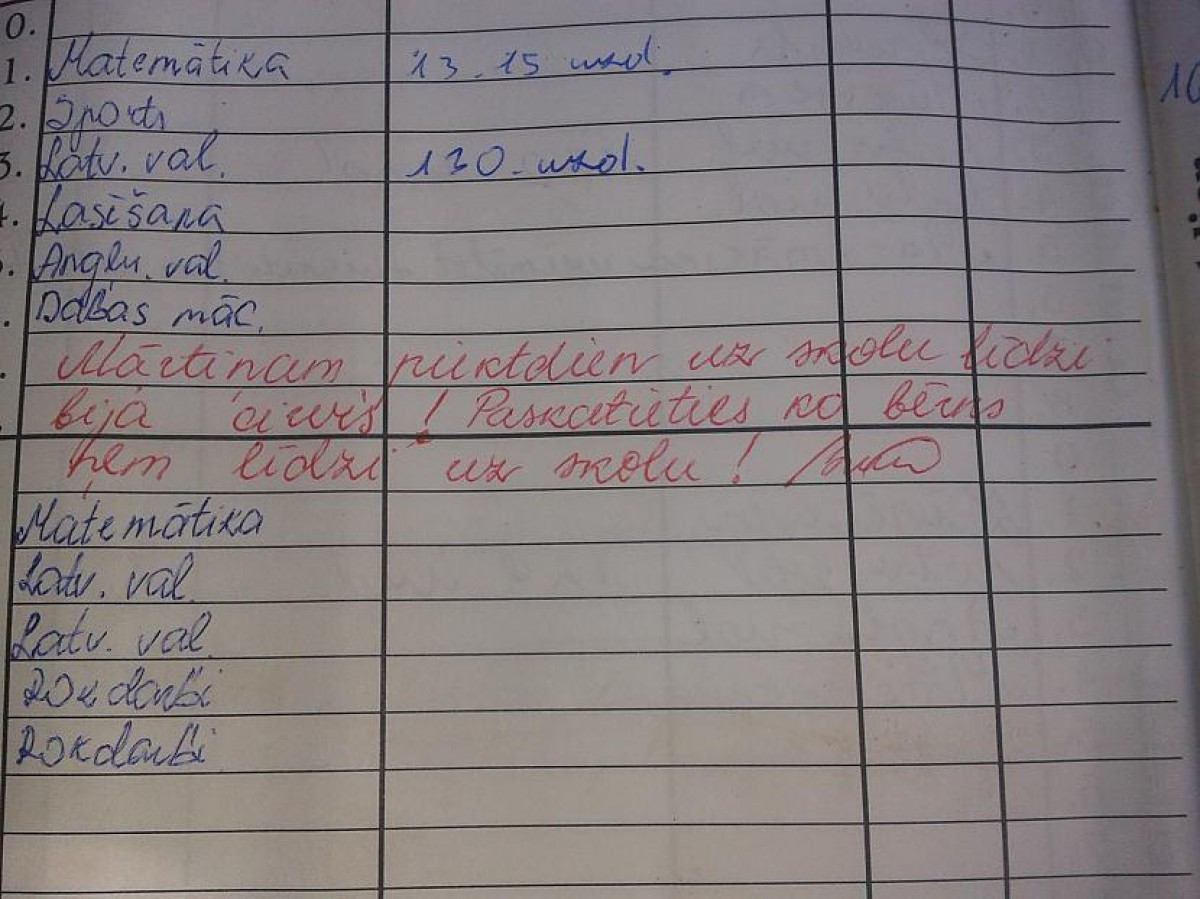 0.
1. Matemātika 13. 15 uzd.
2. Sports
3. Latv. val. 130. uzd.
4. Lasīšana
Angļu. val.
Dabas māc.
Mārtiņam piektdien uz skolu līdzi
bija cirvis! Paskatieties ko bērns
ņem līdzi uz skolu!
Matemātika
Latv. val.
Latv. val.
Rokdarbi
Rokdarbi